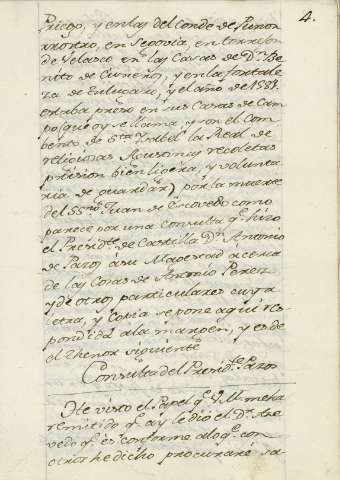 4.
Priego, y en las del Conde de Puñon
rrostro, en Segovia, en torrejon
de Velasco en las Casas de Dn. Be
nito de Cisneros, y en la fortale
za de Turuegano, y el año de 1581.
estaba preso en sus Casas de Cam
po (que oy se llama, y son el Com
bento, de Sta. Ysabel la Real de
religiosas Agustinas recoletas
prision bien ligera, y volunta
ria de guardar) por la muerte
del SSno. Juan de Escovedo como
parece por una consulta qe. hizo
el Presidte. de Castilla Dn. Antonio
de Pazos á su Magestad acerca
de las Cosas de Antonio Perez
y de otros particulares cuya
letra, y Copia se pone aqui res
pondida ala margen, y es de
el thenor siguiente
Consulta del Presidte. Pazos
He visto el Papel qe. V.M. me ha
remitido qe. ay le dió el Dn. Aze
vedo qe. es conforme alo qe. con
otros he dicho procuraré sa-